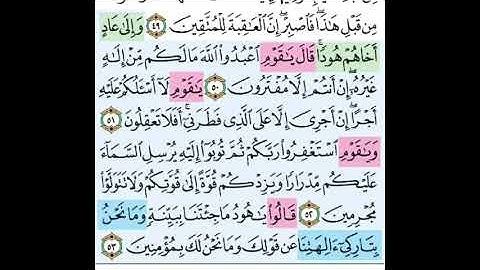 مِن قَبْلِ هَٰذَا ۖ فَاصْبِرْ ۖ إِنَّ الْعَاقِبَةَ لِلْمُتَّقِينَ ٤٩ وَإِلَىٰ عَادٍ
أَخَاهُمْ هُودًا ۚ قَالَ يَٰقَوْمِ اعْبُدُوا اللَّهَ مَالَكُم مِّنْ إِلَٰهٍ
غَيْرُهُۥ ۖ إِنْ أَنتُمْ إِلَّا مُفْتَرُونَ ٥٠ يَٰقَوْمِ لَآ أَسْـَٔلُكُمْ عَلَيْهِ
أَجْرًا ۖ إِنْ أَجْرِىَ إِلَّا عَلَى الَّذِى فَطَرَنِىٓ ۚ أَفَلَا تَعْقِلُونَ ٥١
وَيَٰقَوْمِ اسْتَغْفِرُوا رَبَّكُمْ ثُمَّ تُوبُوٓا إِلَيْهِ يُرْسِلِ السَّمَآءَ
عَلَيْكُم مِّدْرَارًا وَيَزِدْكُمْ قُوَّةً إِلَىٰ قُوَّتِكُمْ وَلَا تَتَوَلَّوْا
مُجْرِمِينَ ٥٢ قَالُوا يَٰهُودُ مَا جِئْتَنَا بِبَيِّنَةٍ وَمَا نَحْنُ
بِتَارِكِىٓ ءَالِهَتِنَا عَن قَوْلِكَ وَمَا نَحْنُ لَكَ بِمُؤْمِنِينَ ٥٣